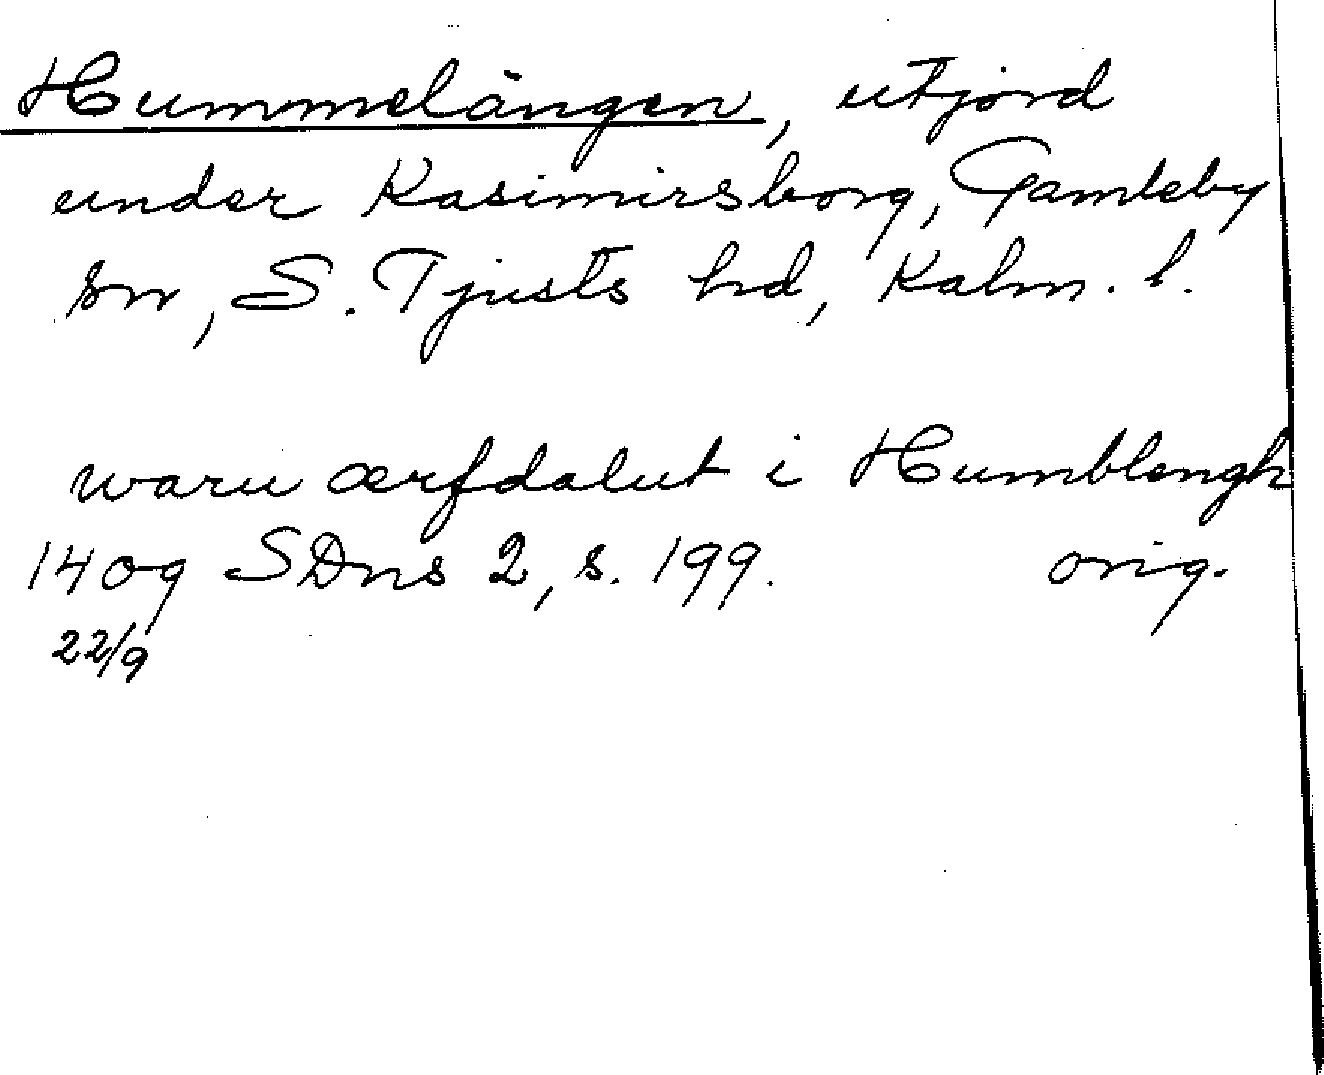 Hummelängen, utjord
under Kasimirsborg, Gamleby
sn, S. Tjusts hd, Kalm. l.
waru ærfdalut i Humblengh
1409 SDns 2, s. 199. orig.
22/9